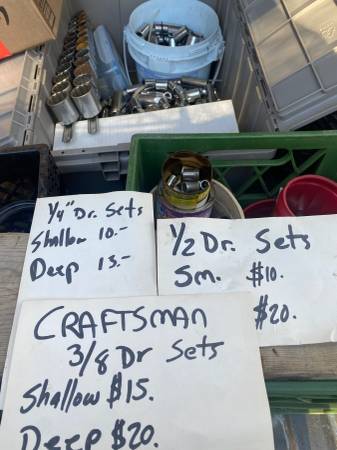 1/4" Dr. Sets
Shallow 10.-
Deep 15.-
1/2 Dr. Sets
Sm. $10.
$20.
CRAFTSMAN
3/8 Dr Sets
Shallow $15.
Deep $20.